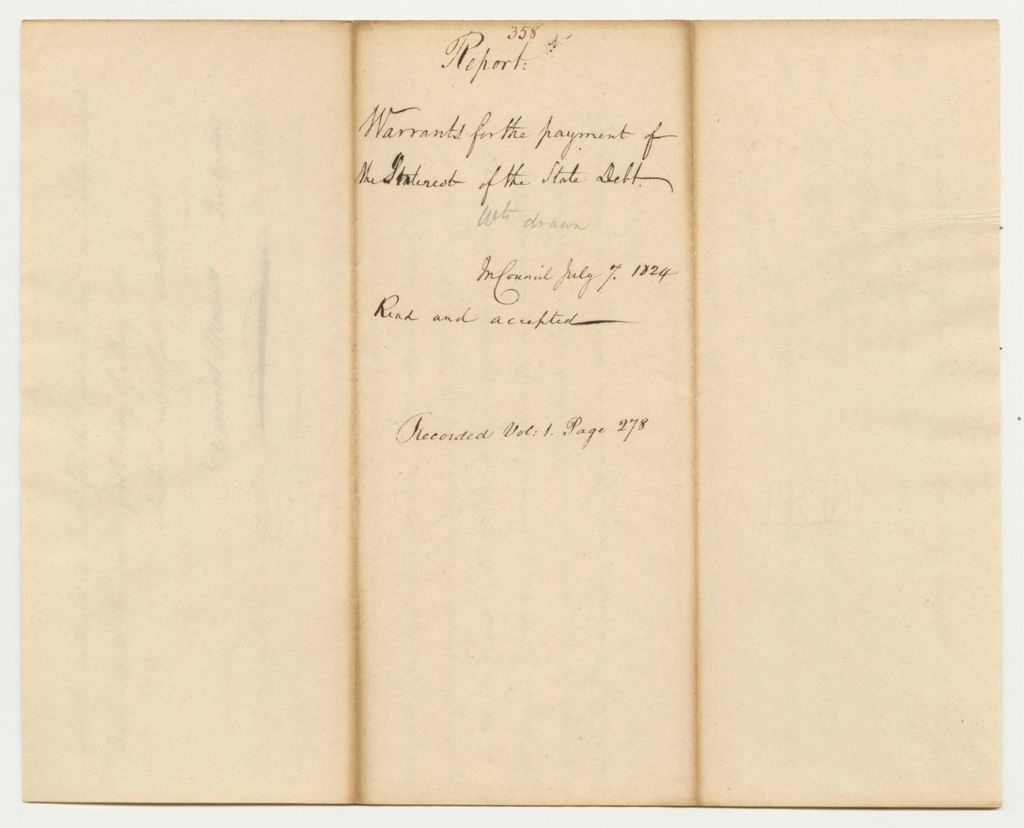 358
Report:
Warrants for the payment of
the Interest of the State Debt.
Wts drawn
In Council July 7. 1824
Read and accepted
Recorded Vol: 1. Page 278